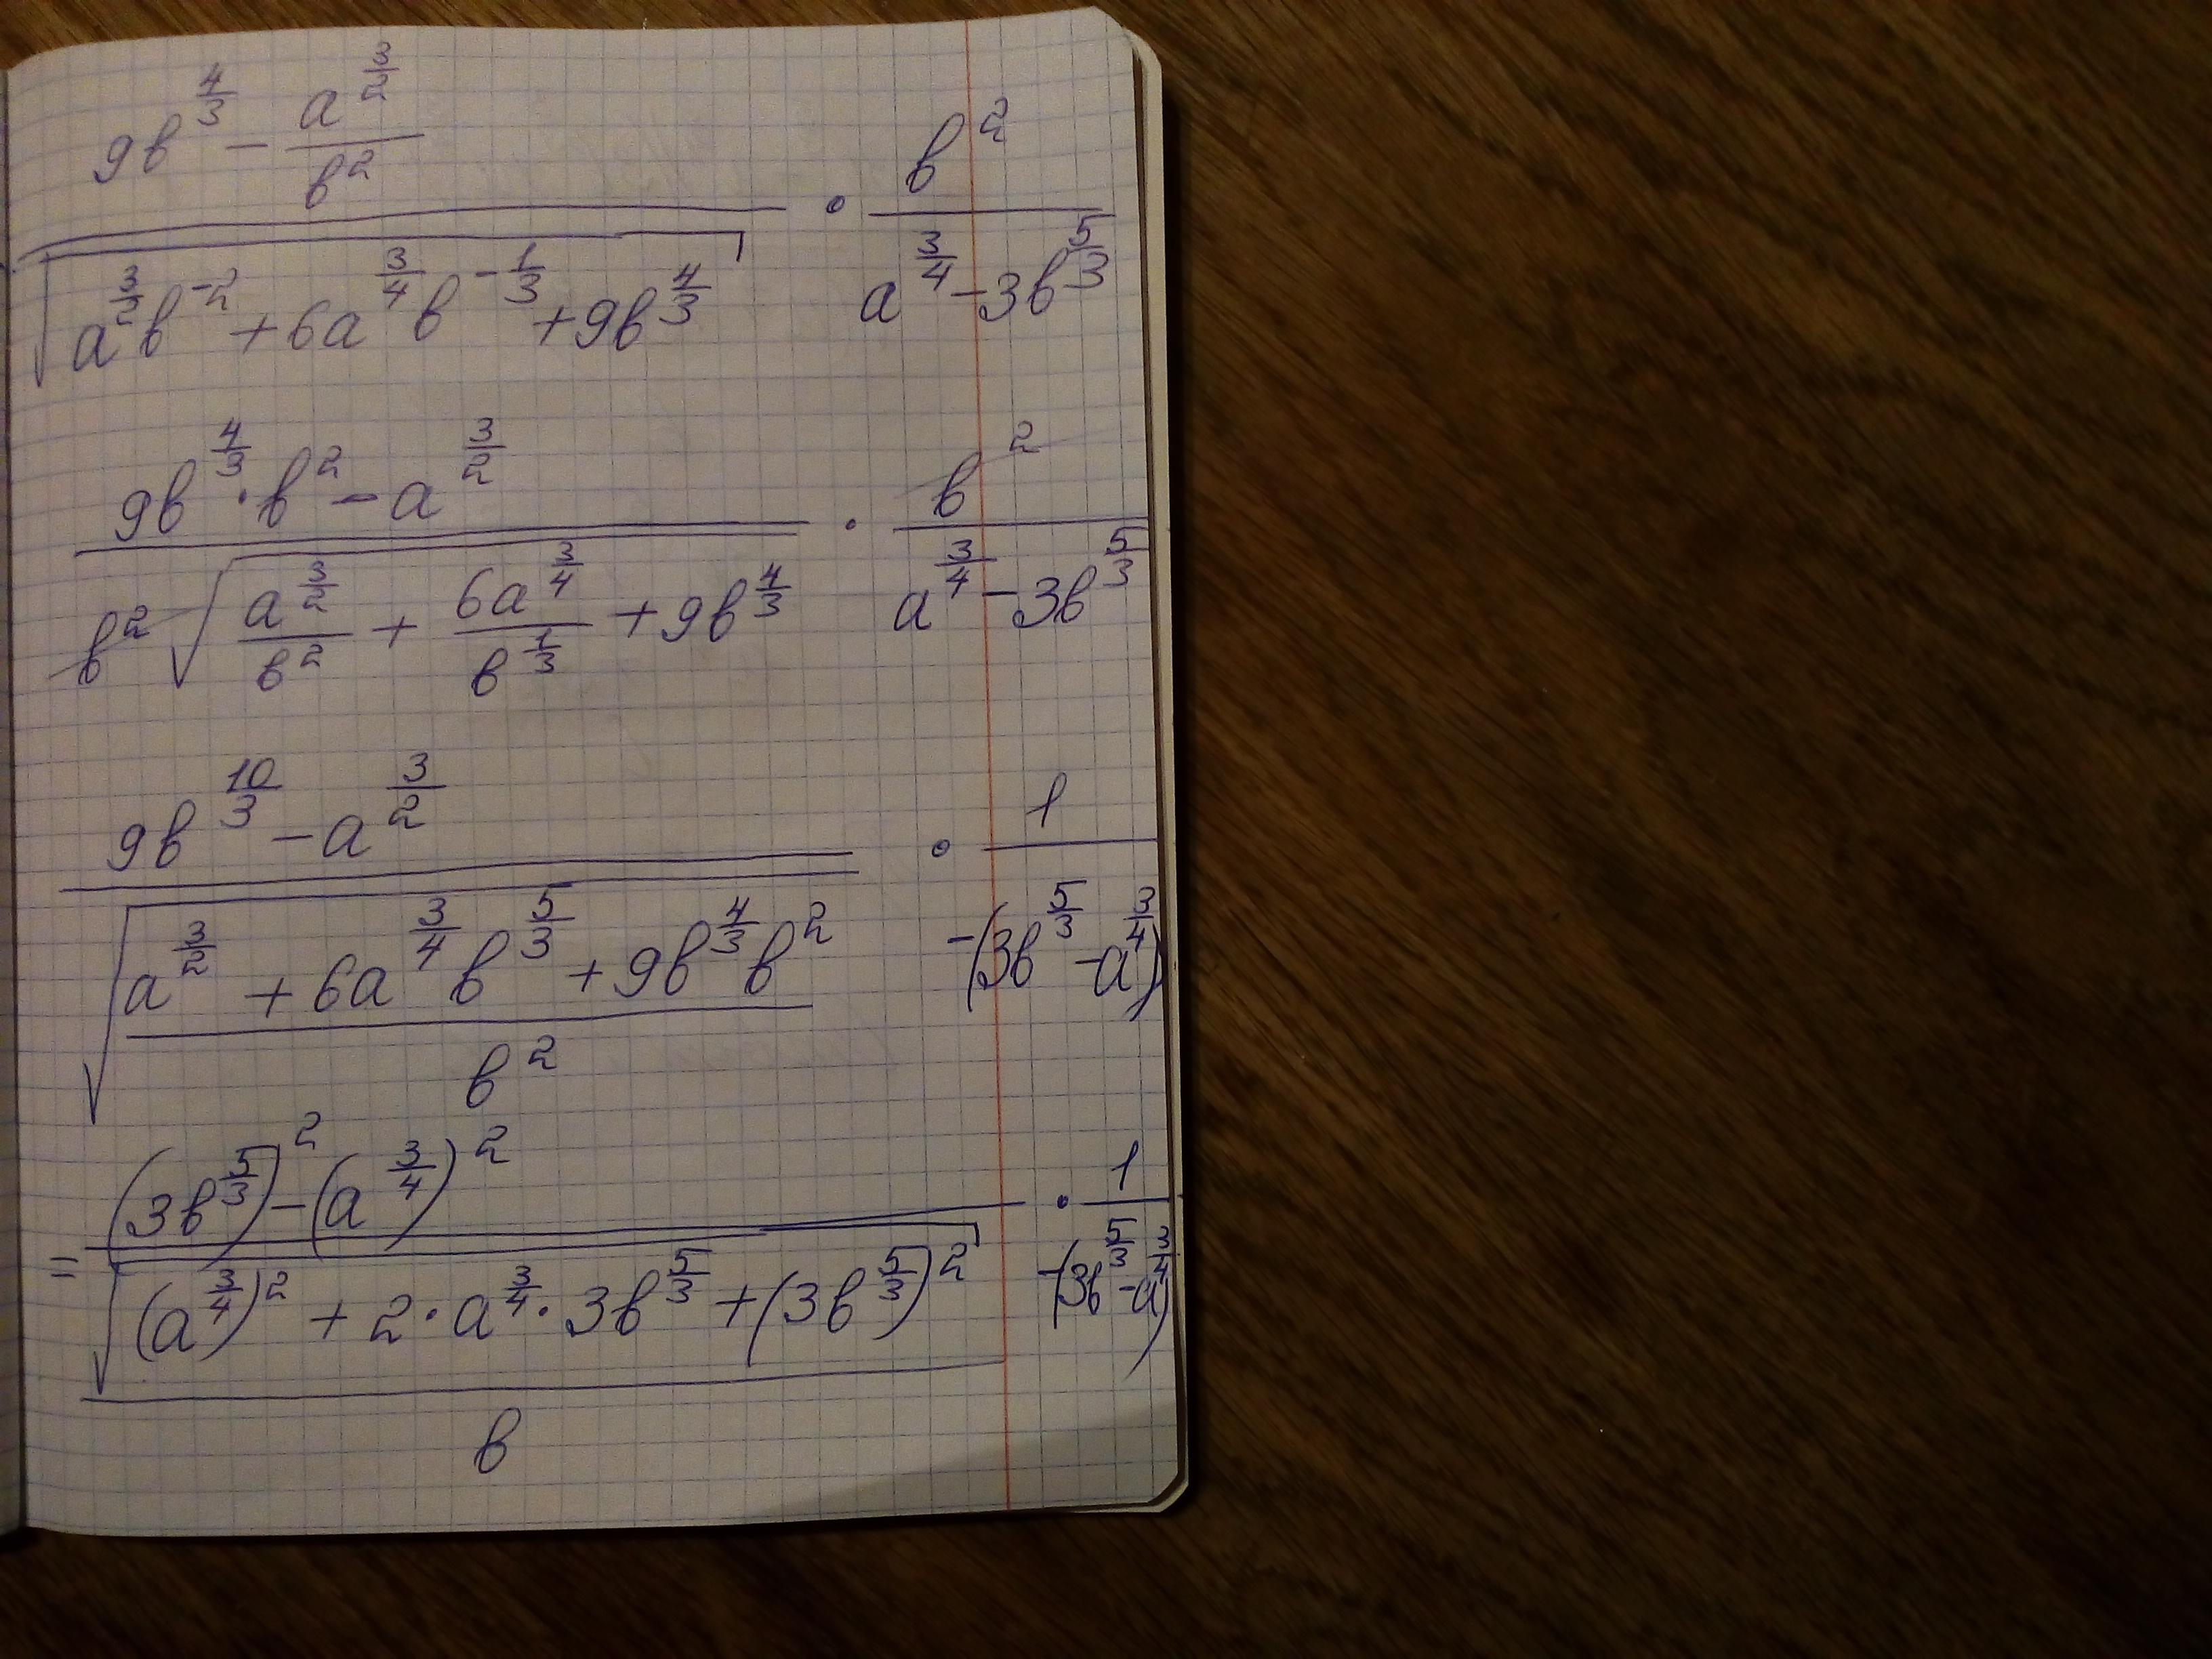 (9в^(4/3) − a^(3/2)/в^2) / √(a^(3/2)в^(−2) + 6a^(3/4)в^(−1/3) + 9в^(4/3)) · в^2/(a^(3/4) − 3в^(5/3))
(9в^(4/3) · в^2 − a^(3/2)) / (в^2 √(a^(3/2)/в^2 + 6a^(3/4)/в^(1/3) + 9в^(4/3))) · в^2/(a^(3/4) − 3в^(5/3))
(9в^(10/3) − a^(3/2)) / √((a^(3/2) + 6a^(3/4)в^(5/3) + 9в^(4/3)в^2)/в^2) · 1/(−(3в^(5/3) − a^(3/4)))
= ((3в^(5/3))^2 − (a^(3/4))^2) / (√((a^(3/4))^2 + 2·a^(3/4)·3в^(5/3) + (3в^(5/3))^2)/в) · 1/(−(3в^(5/3) − a^(3/4)))